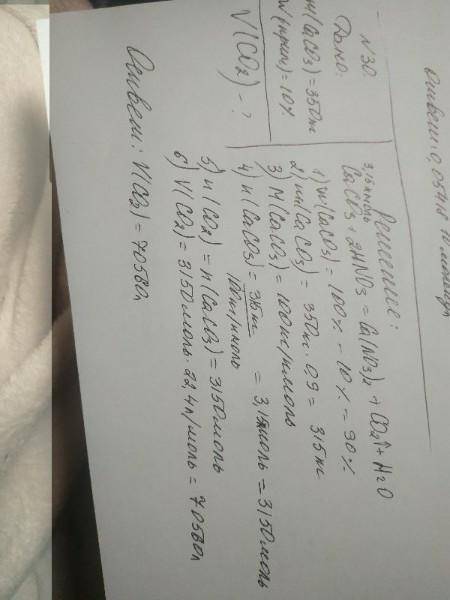 Ответ: 0,0541
N30.
Дано:
m(CaCO3) = 350 кг
W(прим) = 10%
V(CO2) - ?
Решение:
3,15 кмоль
CaCO3 + 2HNO3 = Ca(NO3)2 + CO2↑ + H2O
1) W(CaCO3) = 100% - 10% = 90%
2) m(CaCO3) = 350кг · 0,9 = 315 кг
3) M(CaCO3) = 100 кг/кмоль
4) n(CaCO3) = 315кг / 100кг/кмоль = 3,15кмоль = 3150 моль
5) n(CO2) = n(CaCO3) = 3150 моль
6) V(CO2) = 3150 моль · 22,4 л/моль = 70560 л
Ответ: V(CO2) = 70560л